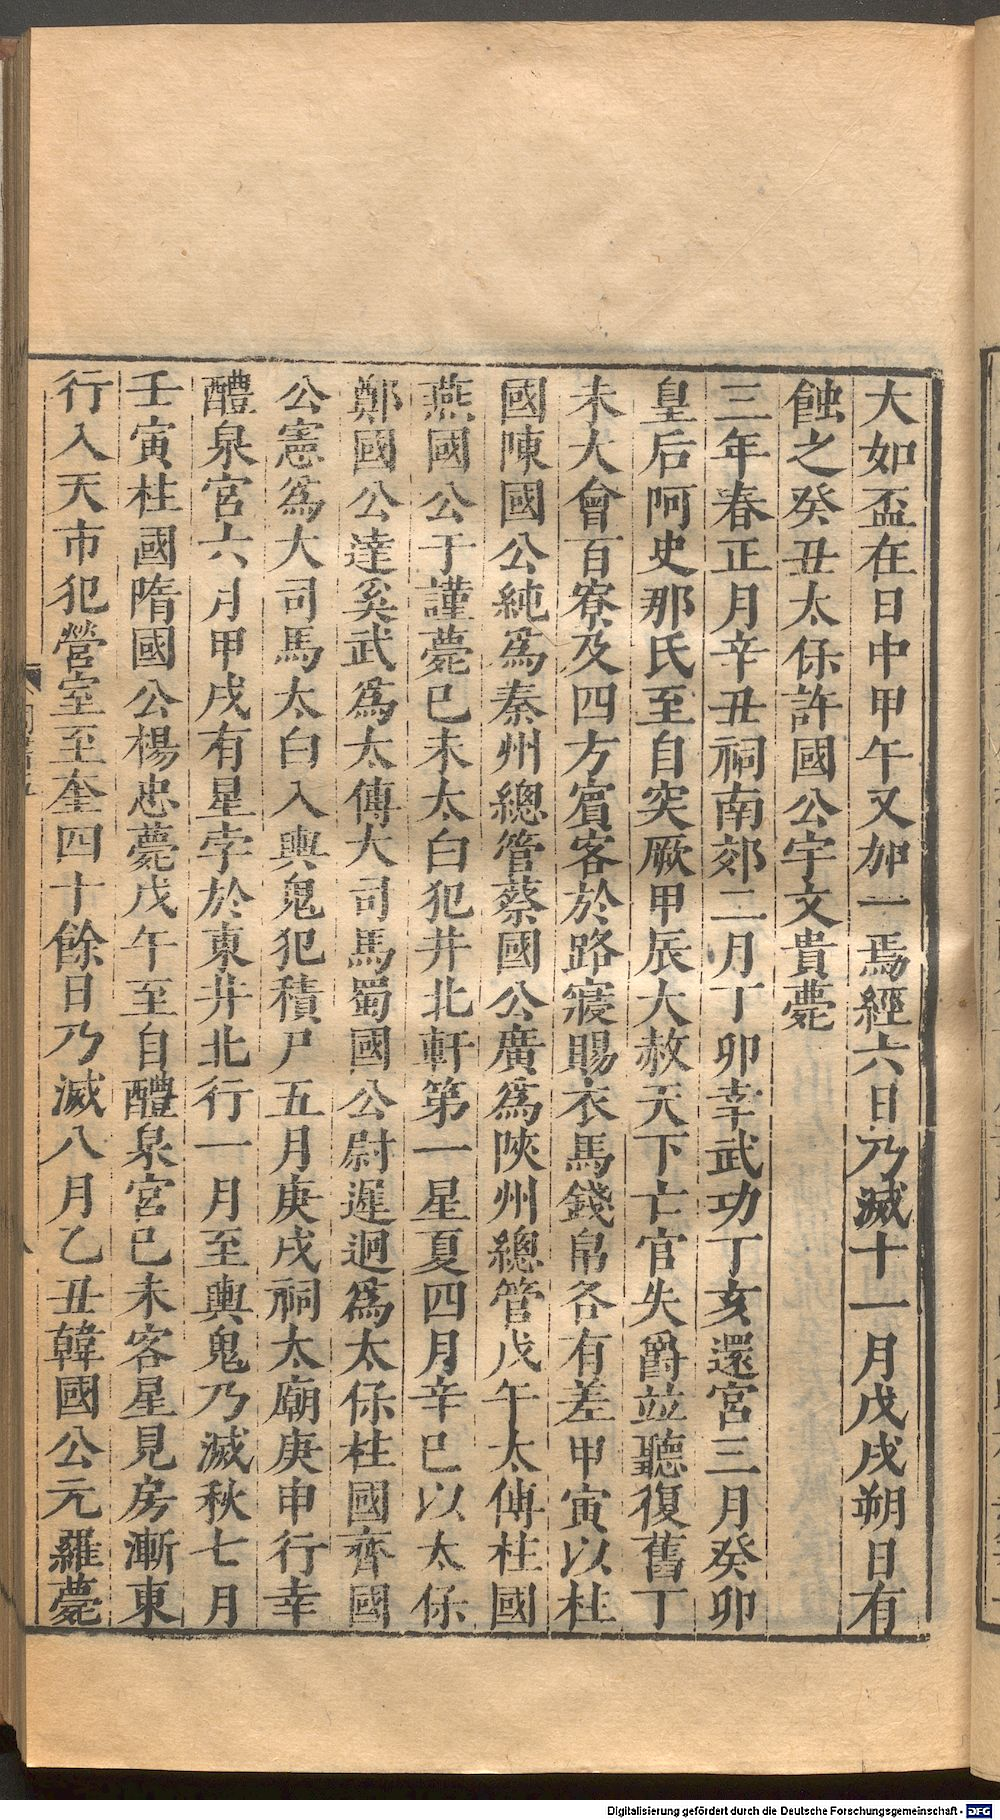 大如盃在日中甲午又加一焉經六日乃滅十一月戊戌朔日有
蝕之癸丑太保許國公宇文貴薨
三年春正月辛丑祠南郊二月丁卯幸武功丁亥還宮三月癸卯
皇后阿史那氏至自突厥甲辰大赦天下亡官失爵並聽復舊丁
未大會百寮及四方賓客於路寢賜衣馬錢帛各有差甲寅以柱
國陳國公純爲秦州總管蔡國公廣爲陝州總管戊午太傅柱國
燕國公于謹薨巳未太白犯井北軒第一星夏四月辛巳以太保
鄭國公達奚武爲太傅大司馬蜀國公尉遲迥爲太保柱國齊國
公憲爲大司馬太白入輿鬼犯積尸五月庚戌祠太廟庚申行幸
醴泉宮六月甲戌有星孛於東井北行一月至輿鬼乃滅秋七月
壬寅柱國隋國公楊忠薨戊午至自醴泉宮巳未客星見房漸東
行入天市犯營室至奎四十餘日乃滅八月乙丑韓國公元羅薨
Digitalisierung gefördert durch die Deutsche Forschungsgemeinschaft - DFG